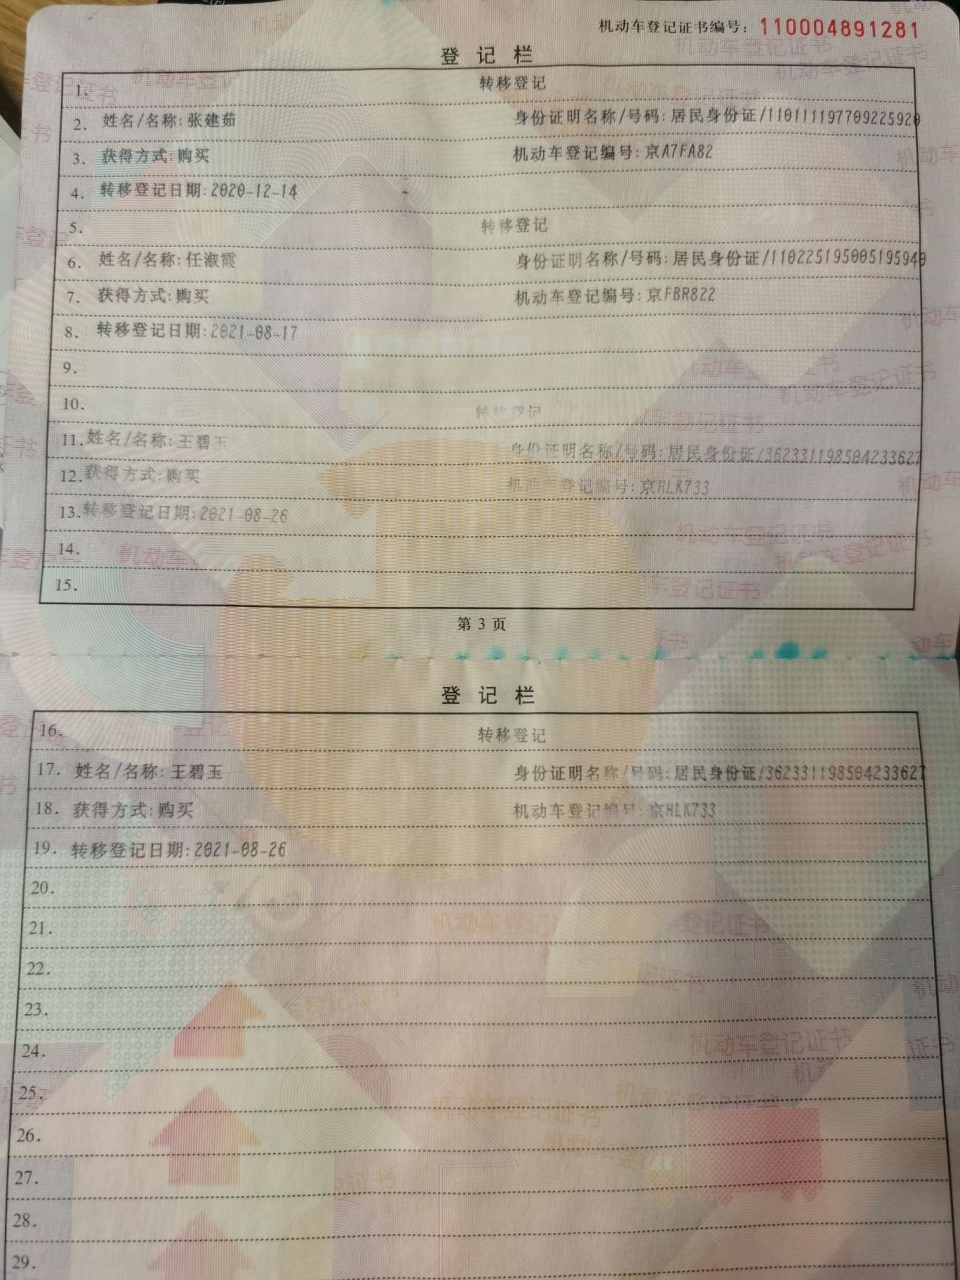 机动车登记证书编号：110004891281
登记栏
1. 转移登记
2. 姓名/名称:张建茹 身份证明名称/号码:居民身份证/110111197709225920
3. 获得方式:购买 机动车登记编号:京A7FA82
4. 转移登记日期:2020-12-14
5. 转移登记
6. 姓名/名称:任淑霞 身份证明名称/号码:居民身份证/110225195005195940
7. 获得方式:购买 机动车登记编号:京FBR822
8. 转移登记日期:2021-08-17
9.
10. 转移登记
11. 姓名/名称:王碧玉 身份证明名称/号码:居民身份证/362331198504233627
12. 获得方式:购买 机动车登记编号:京HLK733
13. 转移登记日期:2021-08-26
14.
15.
第 3 页
登记栏
16. 转移登记
17. 姓名/名称:王碧玉 身份证明名称/号码:居民身份证/362331198504233627
18. 获得方式:购买 机动车登记编号:京HLK733
19. 转移登记日期:2021-08-26
20.
21.
22.
23.
24.
25.
26.
27.
28.
29.